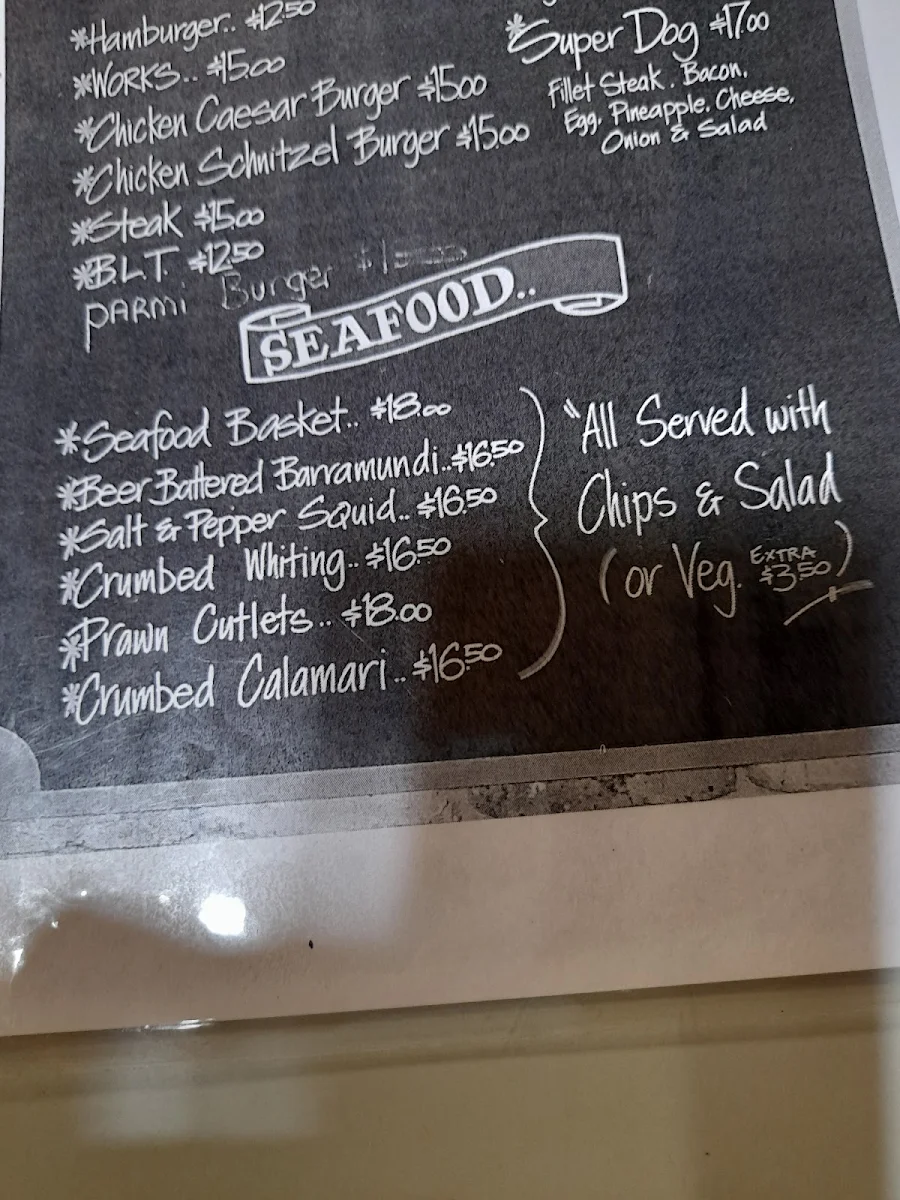 *Hamburger.. $12.50
*WORKS.. $15.00
*Chicken Caesar Burger $15.00
*Chicken Schnitzel Burger $15.00
*Steak $15.00
*B.L.T. $12.50
PARMI Burger
*Super Dog $17.00
Fillet Steak. Bacon.
Egg. Pineapple. Cheese,
Onion & Salad
SEAFOOD..
*Seafood Basket.. $18.00
*Beer Battered Barramundi..$16.50
*Salt & Pepper Squid.. $16.50
*Crumbed Whiting.. $16.50
*Prawn Cutlets.. $18.00
*Crumbed Calamari.. $16.50
"All Served with
Chips & Salad
(or Veg. EXTRA $3.50)